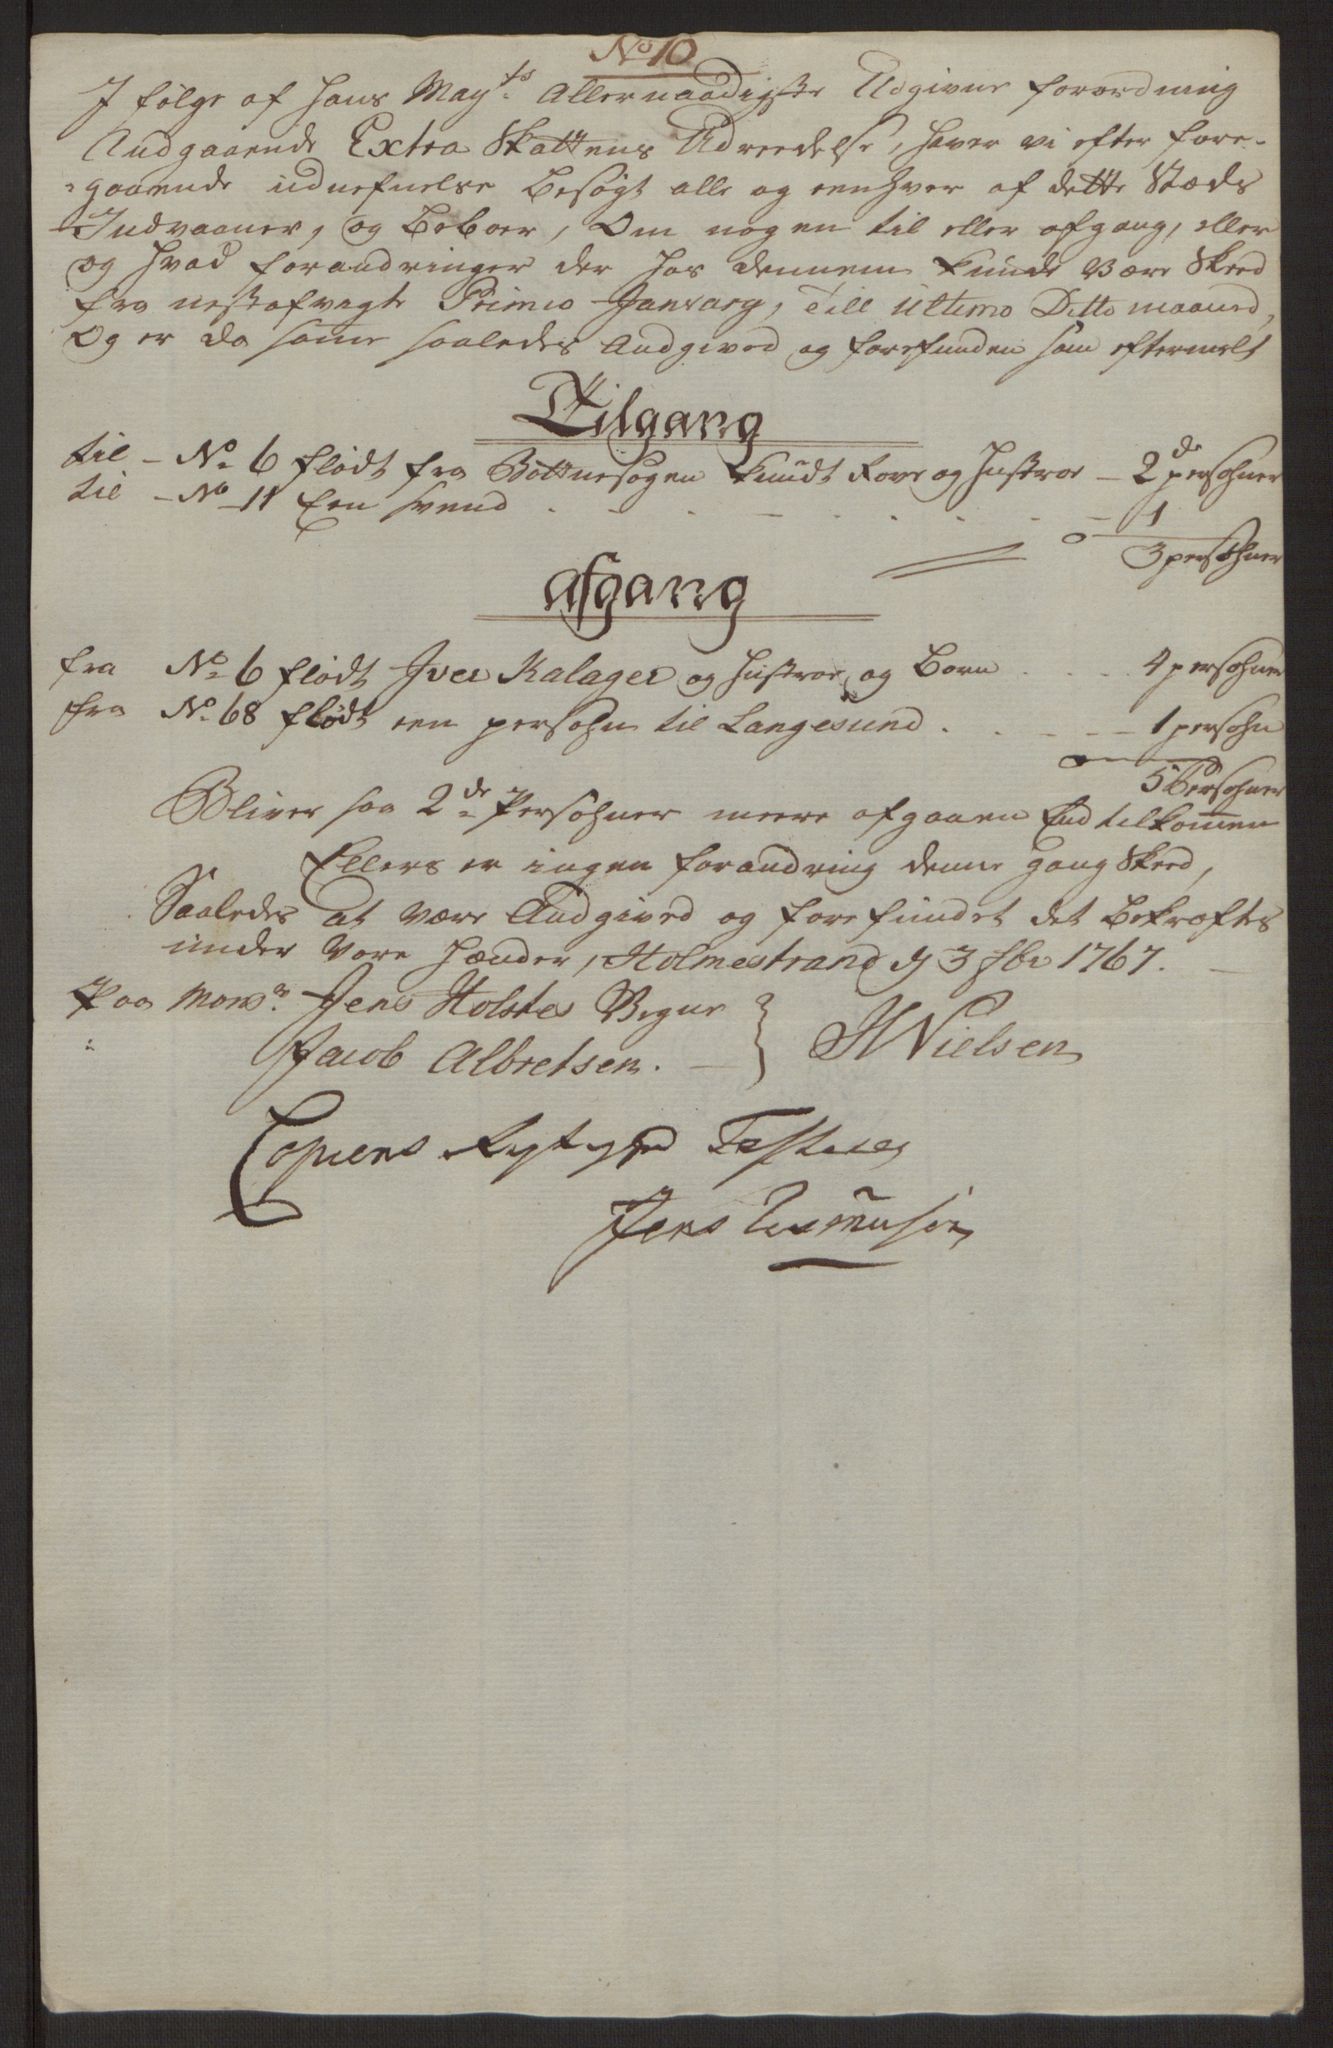 No 10
I følge af Hans Mayts Allernaadigste Udgivne forordning
Andgaaende Extra Skattens Udreedelse, haver vi efter fore-
gaaende udnefnelse besøgt alle og eenhver af dette Stæds
Indvaaner, og beboer, Om nogen til eller afgang, eller
og hvad forandringer der hos dennem kunde være Skeed
fra nestafvigte Primo January, Till ultimo Ditto maaned,
Og er da same saaledes Andgived og forefunden som eftermelt
Tilgang
til - No 6 flødt fra Bottnesogen Knudt Rove og Hustroe - 2de persohner
til - No 11 Een svend - 1
3 persohner
afgang
fra No 6 flødt Iver Kalager og Hustroe, og Born 4 persohner
fra No 68 flødt een persohn til Langesund - 1 persohn
5 Persohner
Bliver saa 2de Persohner meere afgaaen End tilkommen
Ellers er ingen forandring denne gang Skeed,
Saaledes at være Andgived og forefundet det bekræftes
under Vore Hænder, Holmestrand d 3 fbr 1767.
Paa Monsr Jens Holstes Vegne
Jacob Albretsen. - } HNielsen
Copiens Rigtighed Testerer
Jens Rasmusen